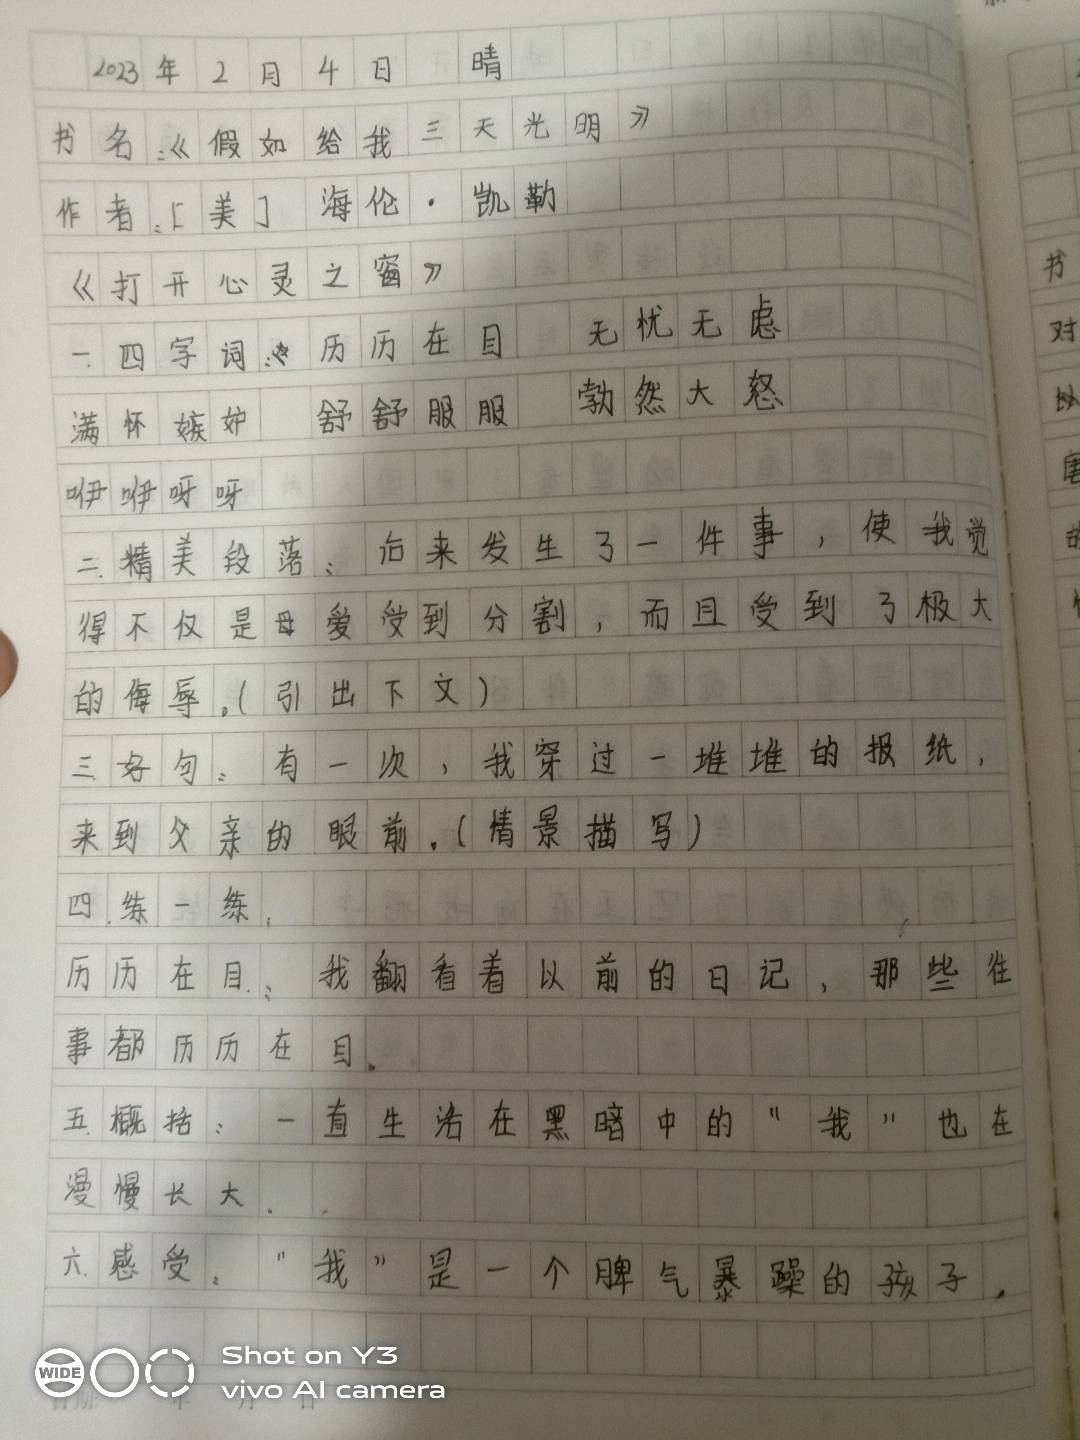 2023年2月4日 晴
书名:《假如给我三天光明》
作者:[美] 海伦·凯勒
《打开心灵之窗》
一.四字词: 历历在目 无忧无虑
满怀嫉妒 舒舒服服 勃然大怒
咿咿呀呀
二.精美段落: 后来发生了一件事,使我觉
得不仅是母爱受到分割,而且受到了极大
的侮辱。(引出下文)
三.好句: 有一次,我穿过一堆堆的报纸,
来到父亲的眼前。(情景描写)
四.练一练:
历历在目: 我翻看着以前的日记,那些往
事都历历在目。
五.概括: 一直生活在黑暗中的"我"也在
漫慢长大.
六.感受: "我"是一个脾气暴躁的孩子.
WIDE
Shot on Y3
vivo AI camera
书
对
以